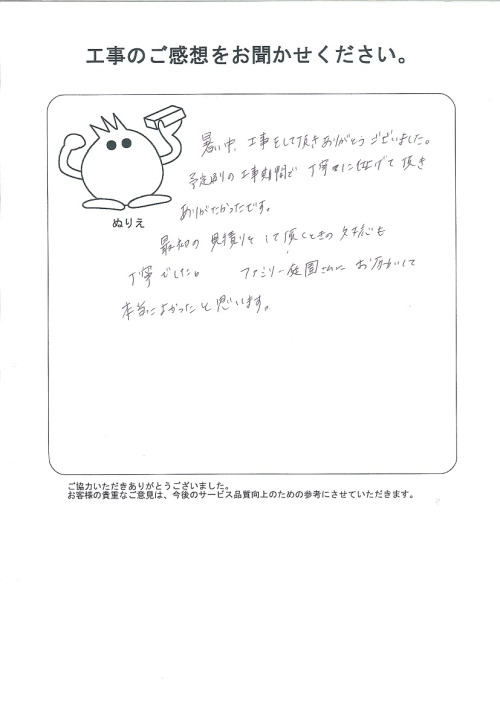 工事のご感想をお聞かせください。
暑い中、工事をして頂きありがとうございました。
予定通りの工事期間で 丁寧に仕上げて頂き
ありがたかったです。
ぬりえ
最初の 見積りを して頂くときの 対応も
丁寧でした。 ファミリー庭園さんに お願いして
本当によかったと思います。
ご協力いただきありがとうございました。
お客様の貴重なご意見は、今後のサービス品質向上のための参考にさせていただきます。